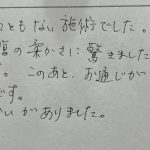 ともない施術でした。
腹の柔かさに驚きました
。このあと、お通じが
です。
いがありました。